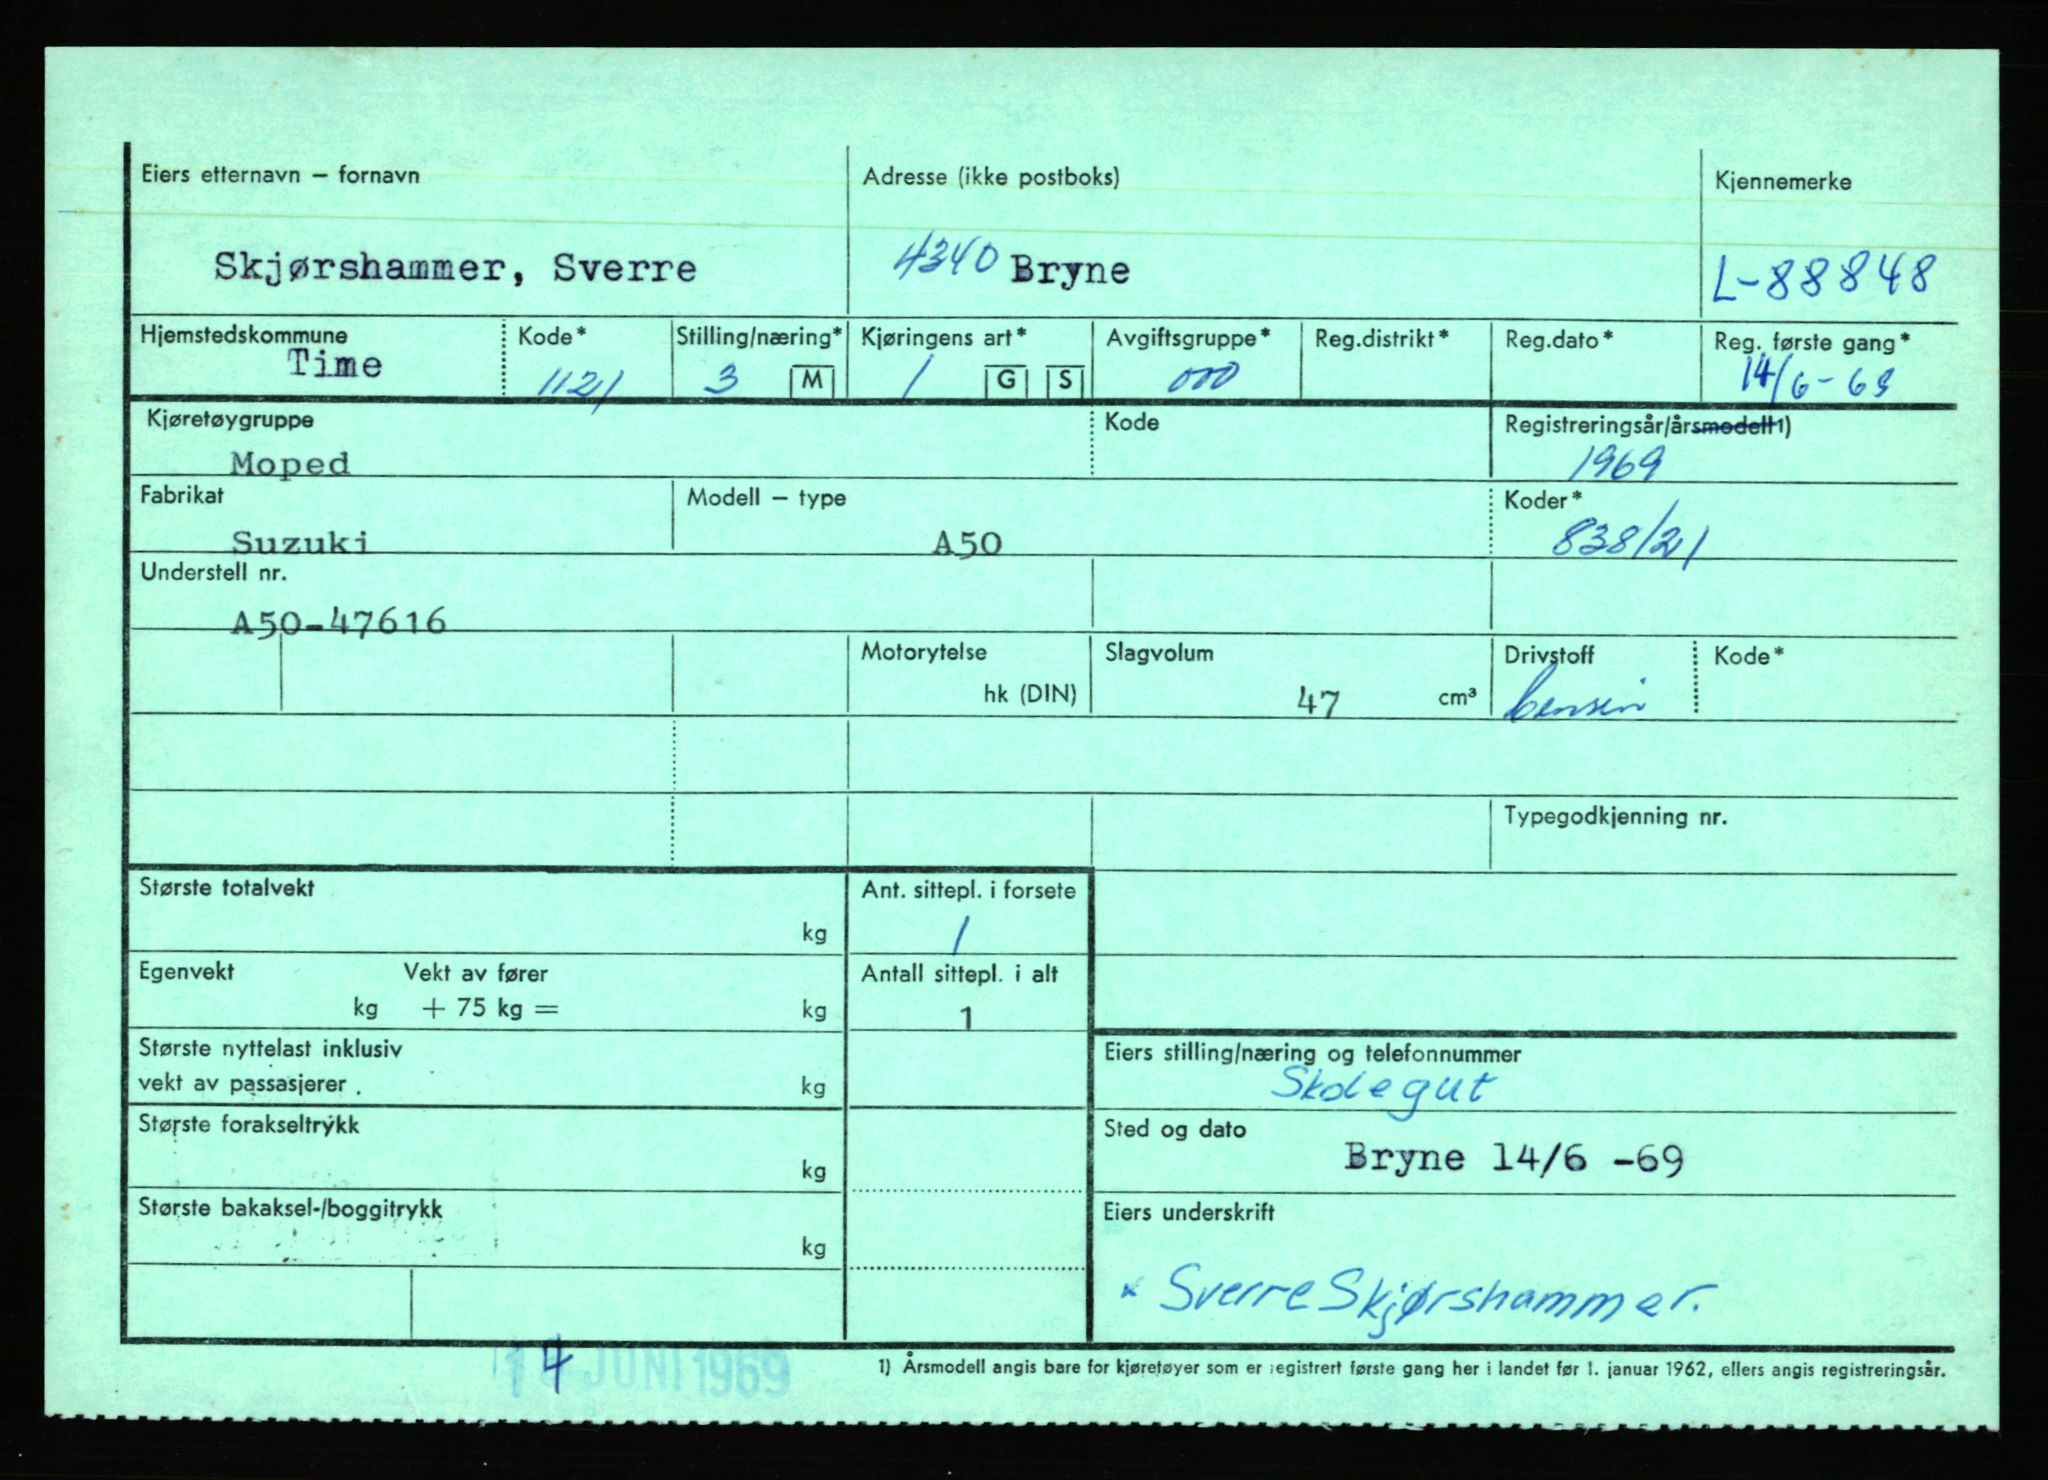 Eiers etternavn – fornavn
Adresse (ikke postboks)
Kjennemerke
Skjørshammer, Sverre
4340 Bryne
L-88848
Hjemstedskommune
Kode*
Stilling/næring*
Kjøringens art*
Avgiftsgruppe*
Reg.distrikt*
Reg.dato*
Reg. første gang*
Time
1121
3
M
1
G
S
000
14/6-69
Kjøretøygruppe
Kode
Registreringsår/årsmodell1)
Moped
1969
Fabrikat
Modell – type
Koder*
Suzuki
A50
838/21
Understell nr.
A50-47616
Motorytelse
Slagvolum
Drivstoff
Kode*
hk (DIN)
47
cm³
bensin
Typegodkjenning nr.
Største totalvekt
Ant. sittepl. i forsete
kg
1
Egenvekt
Vekt av fører
Antall sittepl. i alt
kg + 75 kg =
kg
1
Største nyttelast inklusiv
Eiers stilling/næring og telefonnummer
vekt av passasjerer .
kg
Skolegut
Største forakseltrykk
Sted og dato
kg
Bryne 14/6 -69
Største bakaksel-/boggitrykk
Eiers underskrift
kg
x Sverre Skjørshammer.
14 JUNI 1969
1) Årsmodell angis bare for kjøretøyer som er registrert første gang her i landet før 1. januar 1962, ellers angis registreringsår.